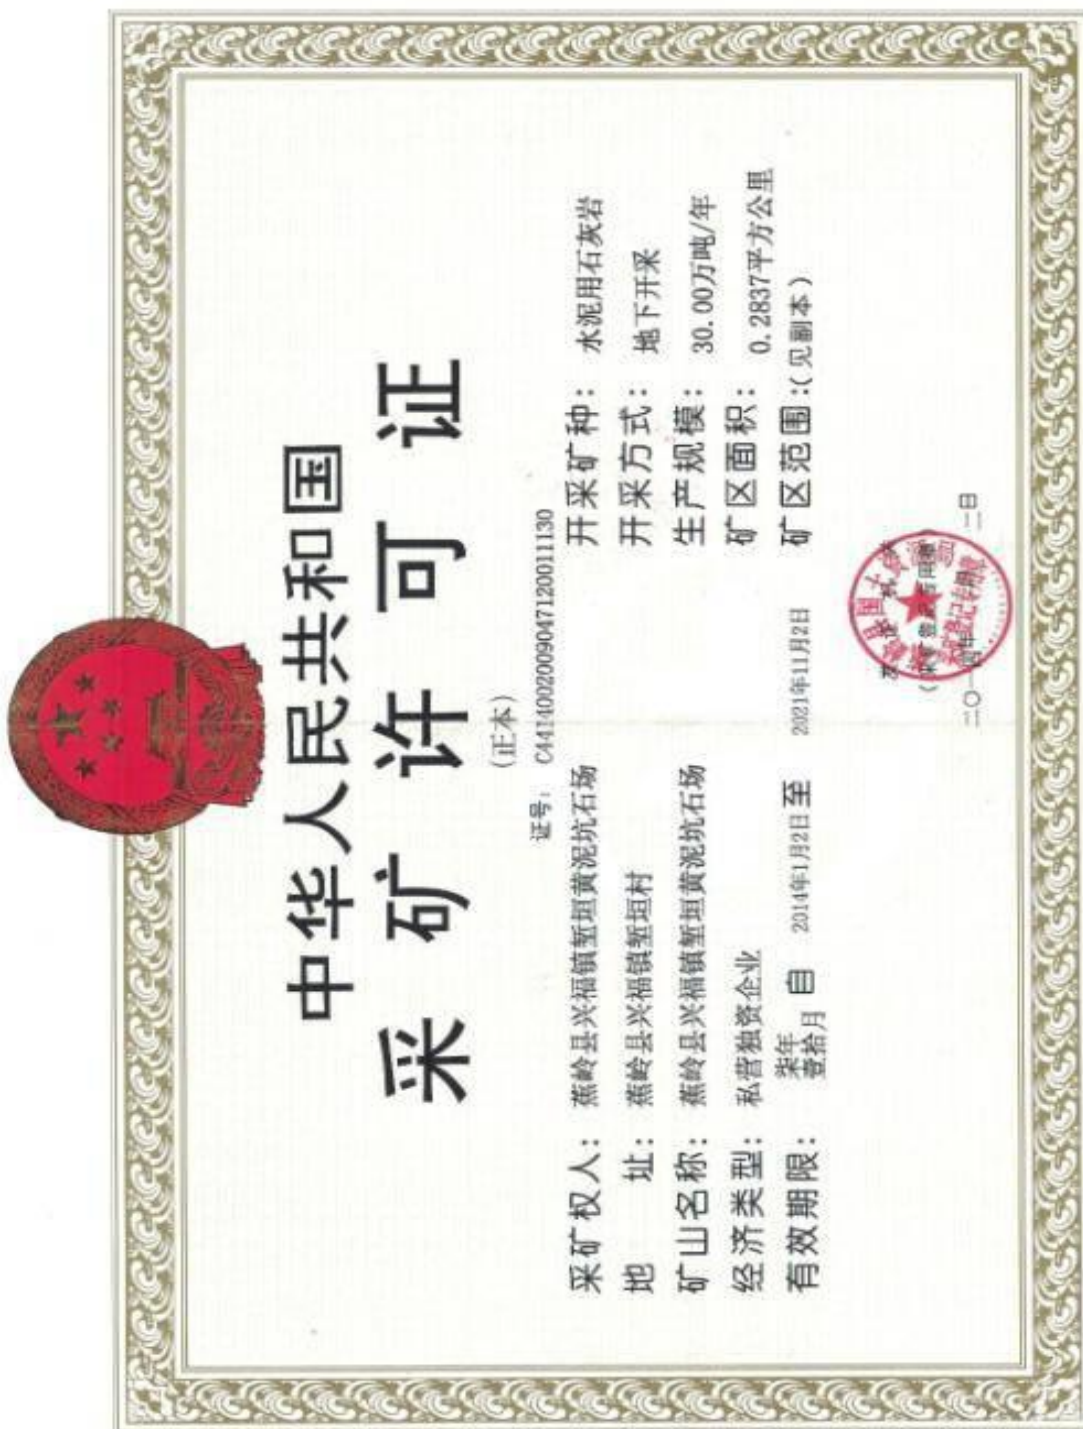 中华人民共和国
采矿许可证
(正本)
证号: C4414002009047120011130
采矿权人: 蕉岭县兴福镇堑垣黄泥坑石场
地 址: 蕉岭县兴福镇堑垣村
矿山名称: 蕉岭县兴福镇堑垣黄泥坑石场
经济类型: 私营独资企业
有效期限: 柒年壹拾月 自 2014年1月2日 至 2021年11月2日
开采矿种: 水泥用石灰岩
开采方式: 地下开采
生产规模: 30.00万吨/年
矿区面积: 0.2837平方公里
矿区范围:(见副本)
采矿登记专用章
二〇一四年 二日